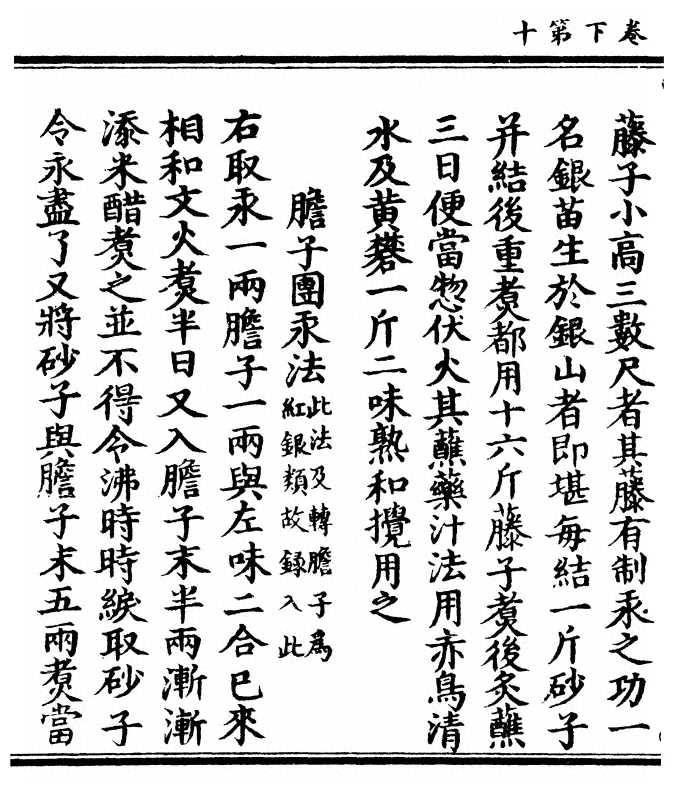 卷下第十
藤子小高三數尺者其藤有制汞之功一
名銀苗生於銀山者即堪每結一斤砂子
并結後重煑都用十六斤藤子煑後炙蘸
三日便當惣伏火其蘸藥汁法用赤鳥清
水及黃礬一斤二味熟和攪用之
膽子團汞法此法及轉膽子爲
紅銀類故録入此
右取汞一兩膽子一兩與左味二合已來
相和文火煑半日又入膽子末半兩漸漸
添米醋煑之並不得令沸時時綟取砂子
令永盡了又將砂子與膽子末五兩煑當